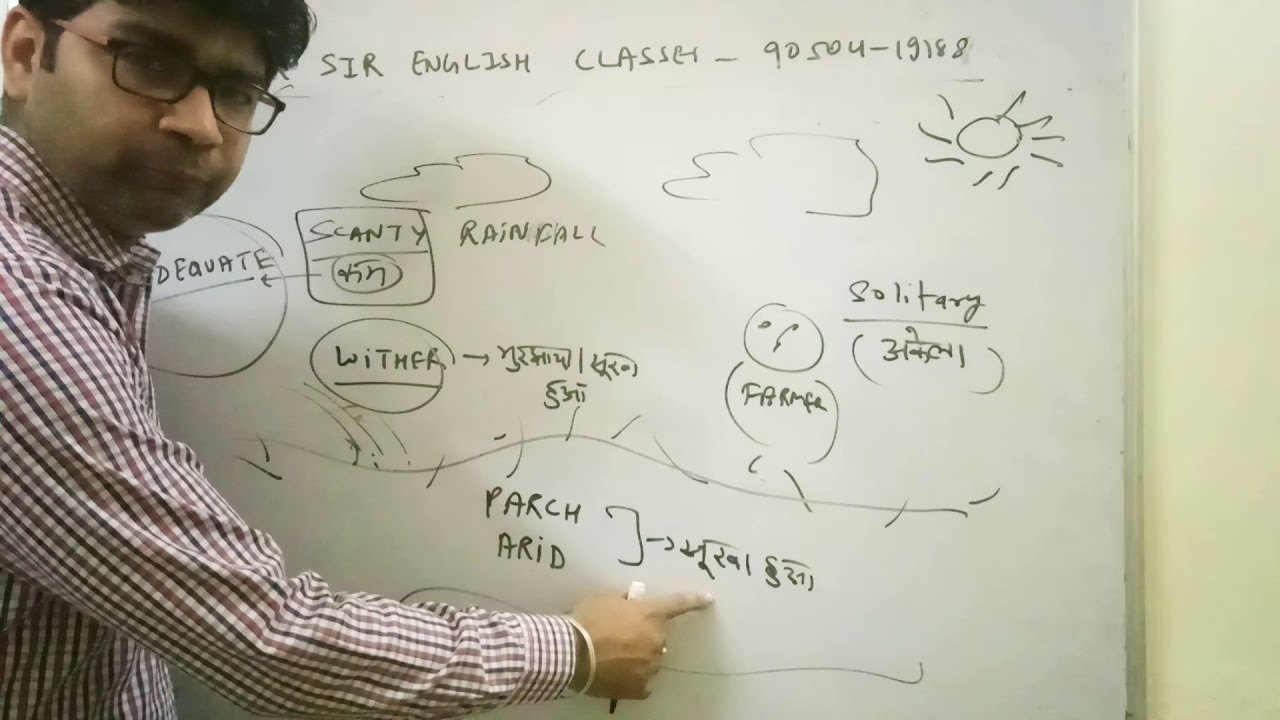 SIR ENGLISH CLASSES - 90504-19188
SCANTY RAINFALL
DEQUATE
कम
Solitary
(अकेला)
WITHER → मुरझाया / सूखा
हुआ
FARMER
PARCH
ARID
→ सूखा हुआ